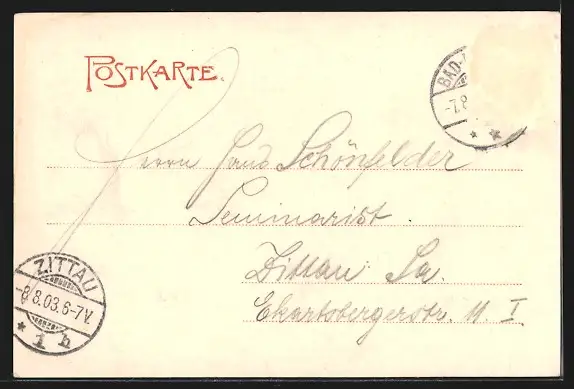 POSTKARTE.
BAD-
-7.8
* *
Herrn Hans Schönfelder
Seminarist.
Zittau Sa.
Ekartsbergerstr. 11. I.
ZITTAU
-8.8.03.6-7V.
* 1 b